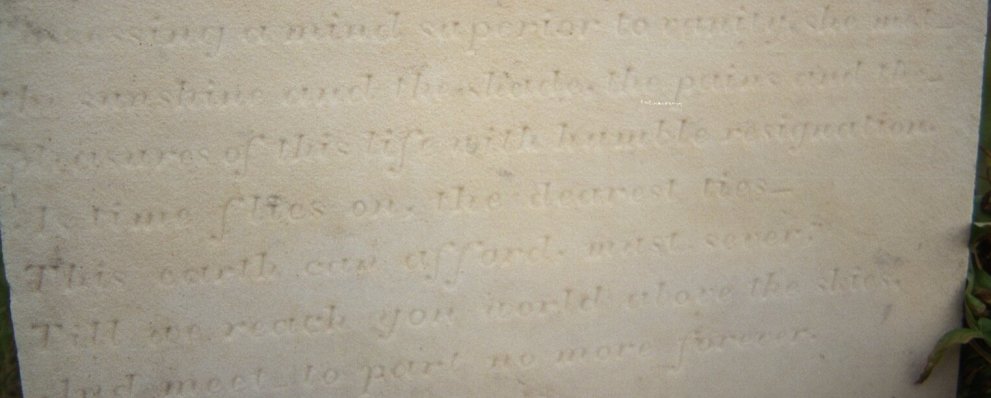 Possessing a mind superior to vanity, she met
the sunshine and the shade, the pains and the
pleasures of this life with humble resignation.
As time flies on, the dearest ties—
This earth can afford, must sever:
Till we reach yon world above the skies,
And meet to part no more forever.